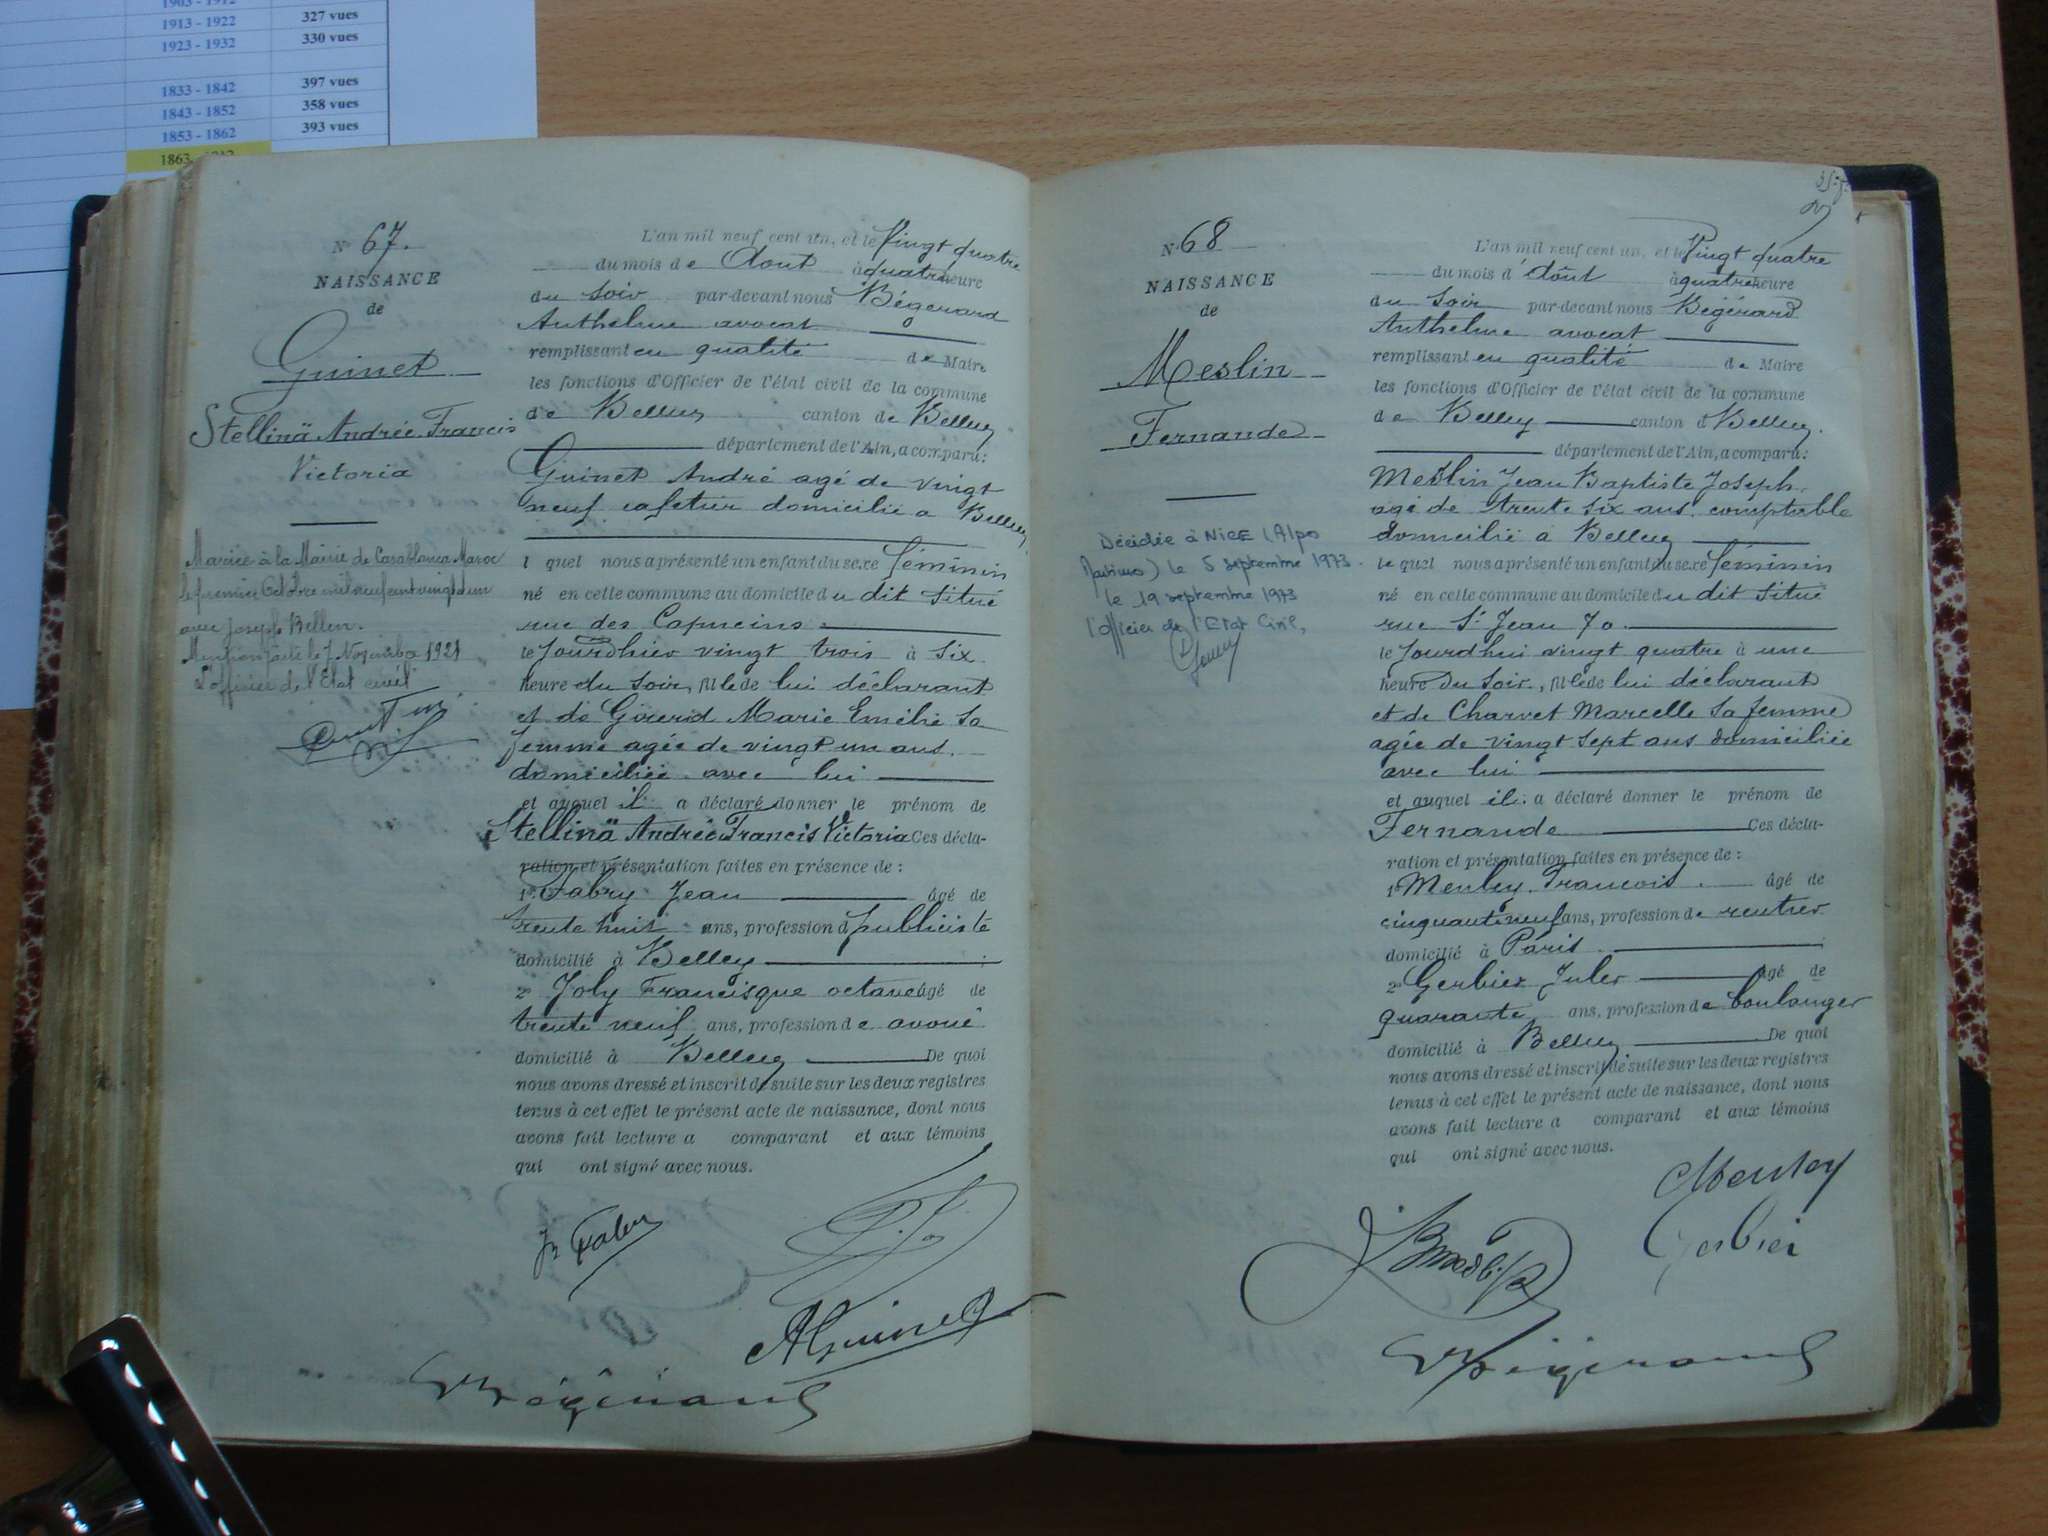 1903 - 1912
1913 - 1922 327 vues
1923 - 1932 330 vues
1833 - 1842 397 vues
1843 - 1852 358 vues
1853 - 1862 393 vues
1863
N° 67.
NAISSANCE
de
Guinet
Stellinä Andrée Francis
Victoria
Mariée à la Mairie de Casablanca Maroc
le premier Octobre mil neuf cent vingt un
avec Joseph Bellen.
Mention faite le 7 Novembre 1921
L'officier de l'Etat civil
L'an mil neuf cent un, et le Vingt quatre
du mois de Aout à quatre heure
du soir par-devant nous Bégerard
Anthelme avocat
remplissant en qualité de Maire
les fonctions d'Officier de l'état civil de la commune
de Belley canton de Belley
département de l'Ain, a comparu:
Guinet André agé de vingt
neuf cafetier domicilié a Belley
l quel nous a présenté un enfant du sexe féminin
né en cette commune au domicile du dit situé
rue des Capucins
le Jourdhier vingt trois à six
heure du soir, fille de lui déclarant
et de Girerd Marie Emélie sa
femme agée de vingt un ans.
domiciliée avec lui
et auquel il a déclaré donner le prénom de
Stellinä Andrée Francis Victoria Ces décla-
ration et présentation faites en présence de :
1° Fabry Jean âgé de
trente huit ans, profession d publiciste
domicilié à Belley
2° Joly Francisque octave âgé de
trente neuf ans, profession de avoué
domicilié à Belley De quoi
nous avons dressé et inscrit de suite sur les deux registres
tenus à cet effet le présent acte de naissance, dont nous
avons fait lecture a comparant et aux témoins
qui ont signé avec nous.
Jn Fabry
AGuinet
Bégérard
N° 68
NAISSANCE
de
Meslin
Fernande
Décédée à NICE (Alpes
Maritimes) le 5 septembre 1973.
le 19 septembre 1973
l'officier de l'Etat Civil,
L'an mil neuf cent un, et le Vingt quatre
du mois d'Aôut à quatre heure
du soir par-devant nous Bégérard
Anthelme avocat
remplissant en qualité de Maire
les fonctions d'Officier de l'état civil de la commune
de Belley canton d Belley.
département de l'Ain, a comparu:
Meslin Jean Baptiste Joseph.
agé de trente six ans comptable
domicilié a Belley
le quel nous a présenté un enfant du sexe féminin
né en cette commune au domicile du dit situé
rue St Jean 70.
le Jourdhui vingt quatre à une
heure du soir, fille de lui déclarant
et de Charvet Marcelle sa femme
agée de vingt sept ans domiciliée
avec lui
et auquel il a déclaré donner le prénom de
Fernande Ces décla-
ration et présentation faites en présence de :
1° Menley François âgé de
cinquante neuf ans, profession de rentier
domicilié à Paris
2° Gerbier Jules âgé de
quarante ans, profession de boulanger
domicilié à Belley De quoi
nous avons dressé et inscrit de suite sur les deux registres
tenus à cet effet le présent acte de naissance, dont nous
avons fait lecture a comparant et aux témoins
qui ont signé avec nous.
Menley
Gerbier
Bégérard